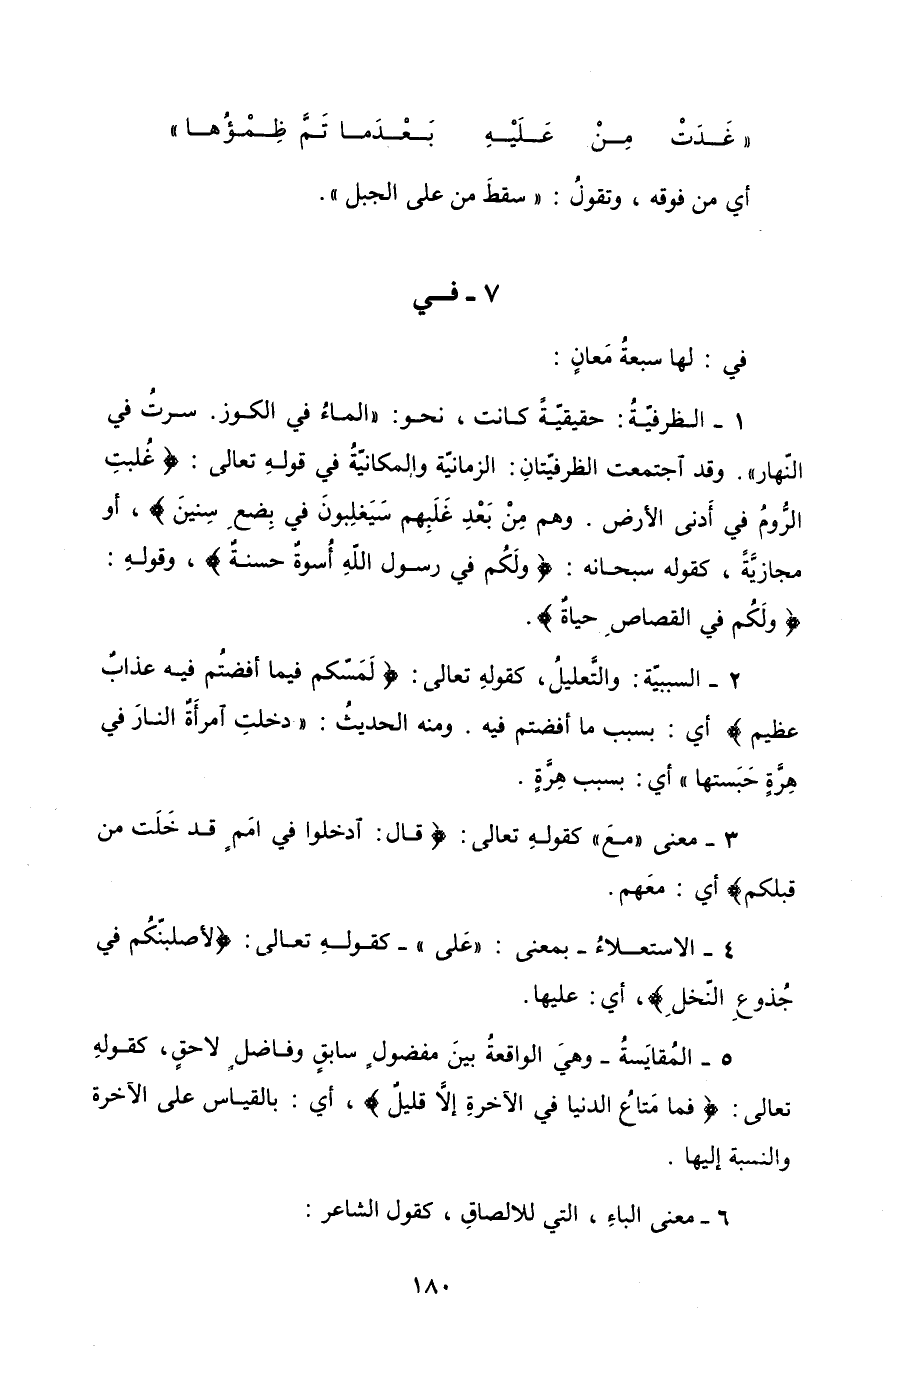 « غَـدَتْ مِـنْ عَـلَيْـهِ بَـعْـدَمـا تَـمَّ ظِـمْـؤُهـا »
أي من فوقه ، وتقولُ : « سقطَ من على الجبل » .
٧ ـ فـي
في : لها سبعةُ مَعانٍ :
١ ـ الـظرفيّـةُ : حقيقيّـةً كـانت ، نحـو : «المـاءُ في الكـوز. سـرتُ في
النّهار» . وقد آجتمعت الظرفيّتانِ : الزمانيّة والمكانيّةُ في قولهِ تعالى : ﴿ غُلبتِ
الرُّومُ في أَدنى الأرض . وهم مِنْ بَعْدِ غَلَبِهم سَيَغلِبونَ في بِضعِ سِنينَ ﴾ ، أو
مجازيَّةً ، كقوله سبحـانه : ﴿ ولَكُم في رسـول اللّهِ أُسوةٌ حسنـةٌ ﴾ ، وقولـهِ :
﴿ ولَكُم في القصاصِ حياةٌ ﴾ .
٢ ـ السببيّة : والتَّعليلُ ، كقولهِ تعالى : ﴿ لَمَسّكم فيما أفضتُم فيـه عذابٌ
عظيم ﴾ أي : بسبب ما أفضتم فيه . ومنه الحديثُ : « دخلتِ آمرأَةٌ النـارَ في
هِرَّةٍ حَبَستها » أي : بسبب هِرَّةٍ .
٣ ـ معنى «مـعَ» كقولـهِ تعالى : ﴿ قـال : آدخلوا في امَمٍ قـد خَلَت من
قبلكم﴾ أي : معَهم .
٤ ـ الاستعـلاءُ ـ بمعنى : «عَلى » ـ كقـولـهِ تعـالى : ﴿لأصلبنّكُم في
جُذوعِ النّخلِ ﴾ ، أي : عليها .
٥ ـ المُقايَسةُ ـ وهيَ الواقعةُ بينَ مفضولٍ سابقٍ وفـاضلٍ لاحقٍ ، كقـولهِ
تعالى : ﴿ فما مَتاعُ الدنيا في الآخرةِ إلاَّ قليلٌ ﴾ ، أي : بالقيـاس على الآخرة
والنسبة إليها .
٦ ـ معنى الباءِ ، التي للالصاقِ ، كقول الشاعر :
١٨٠